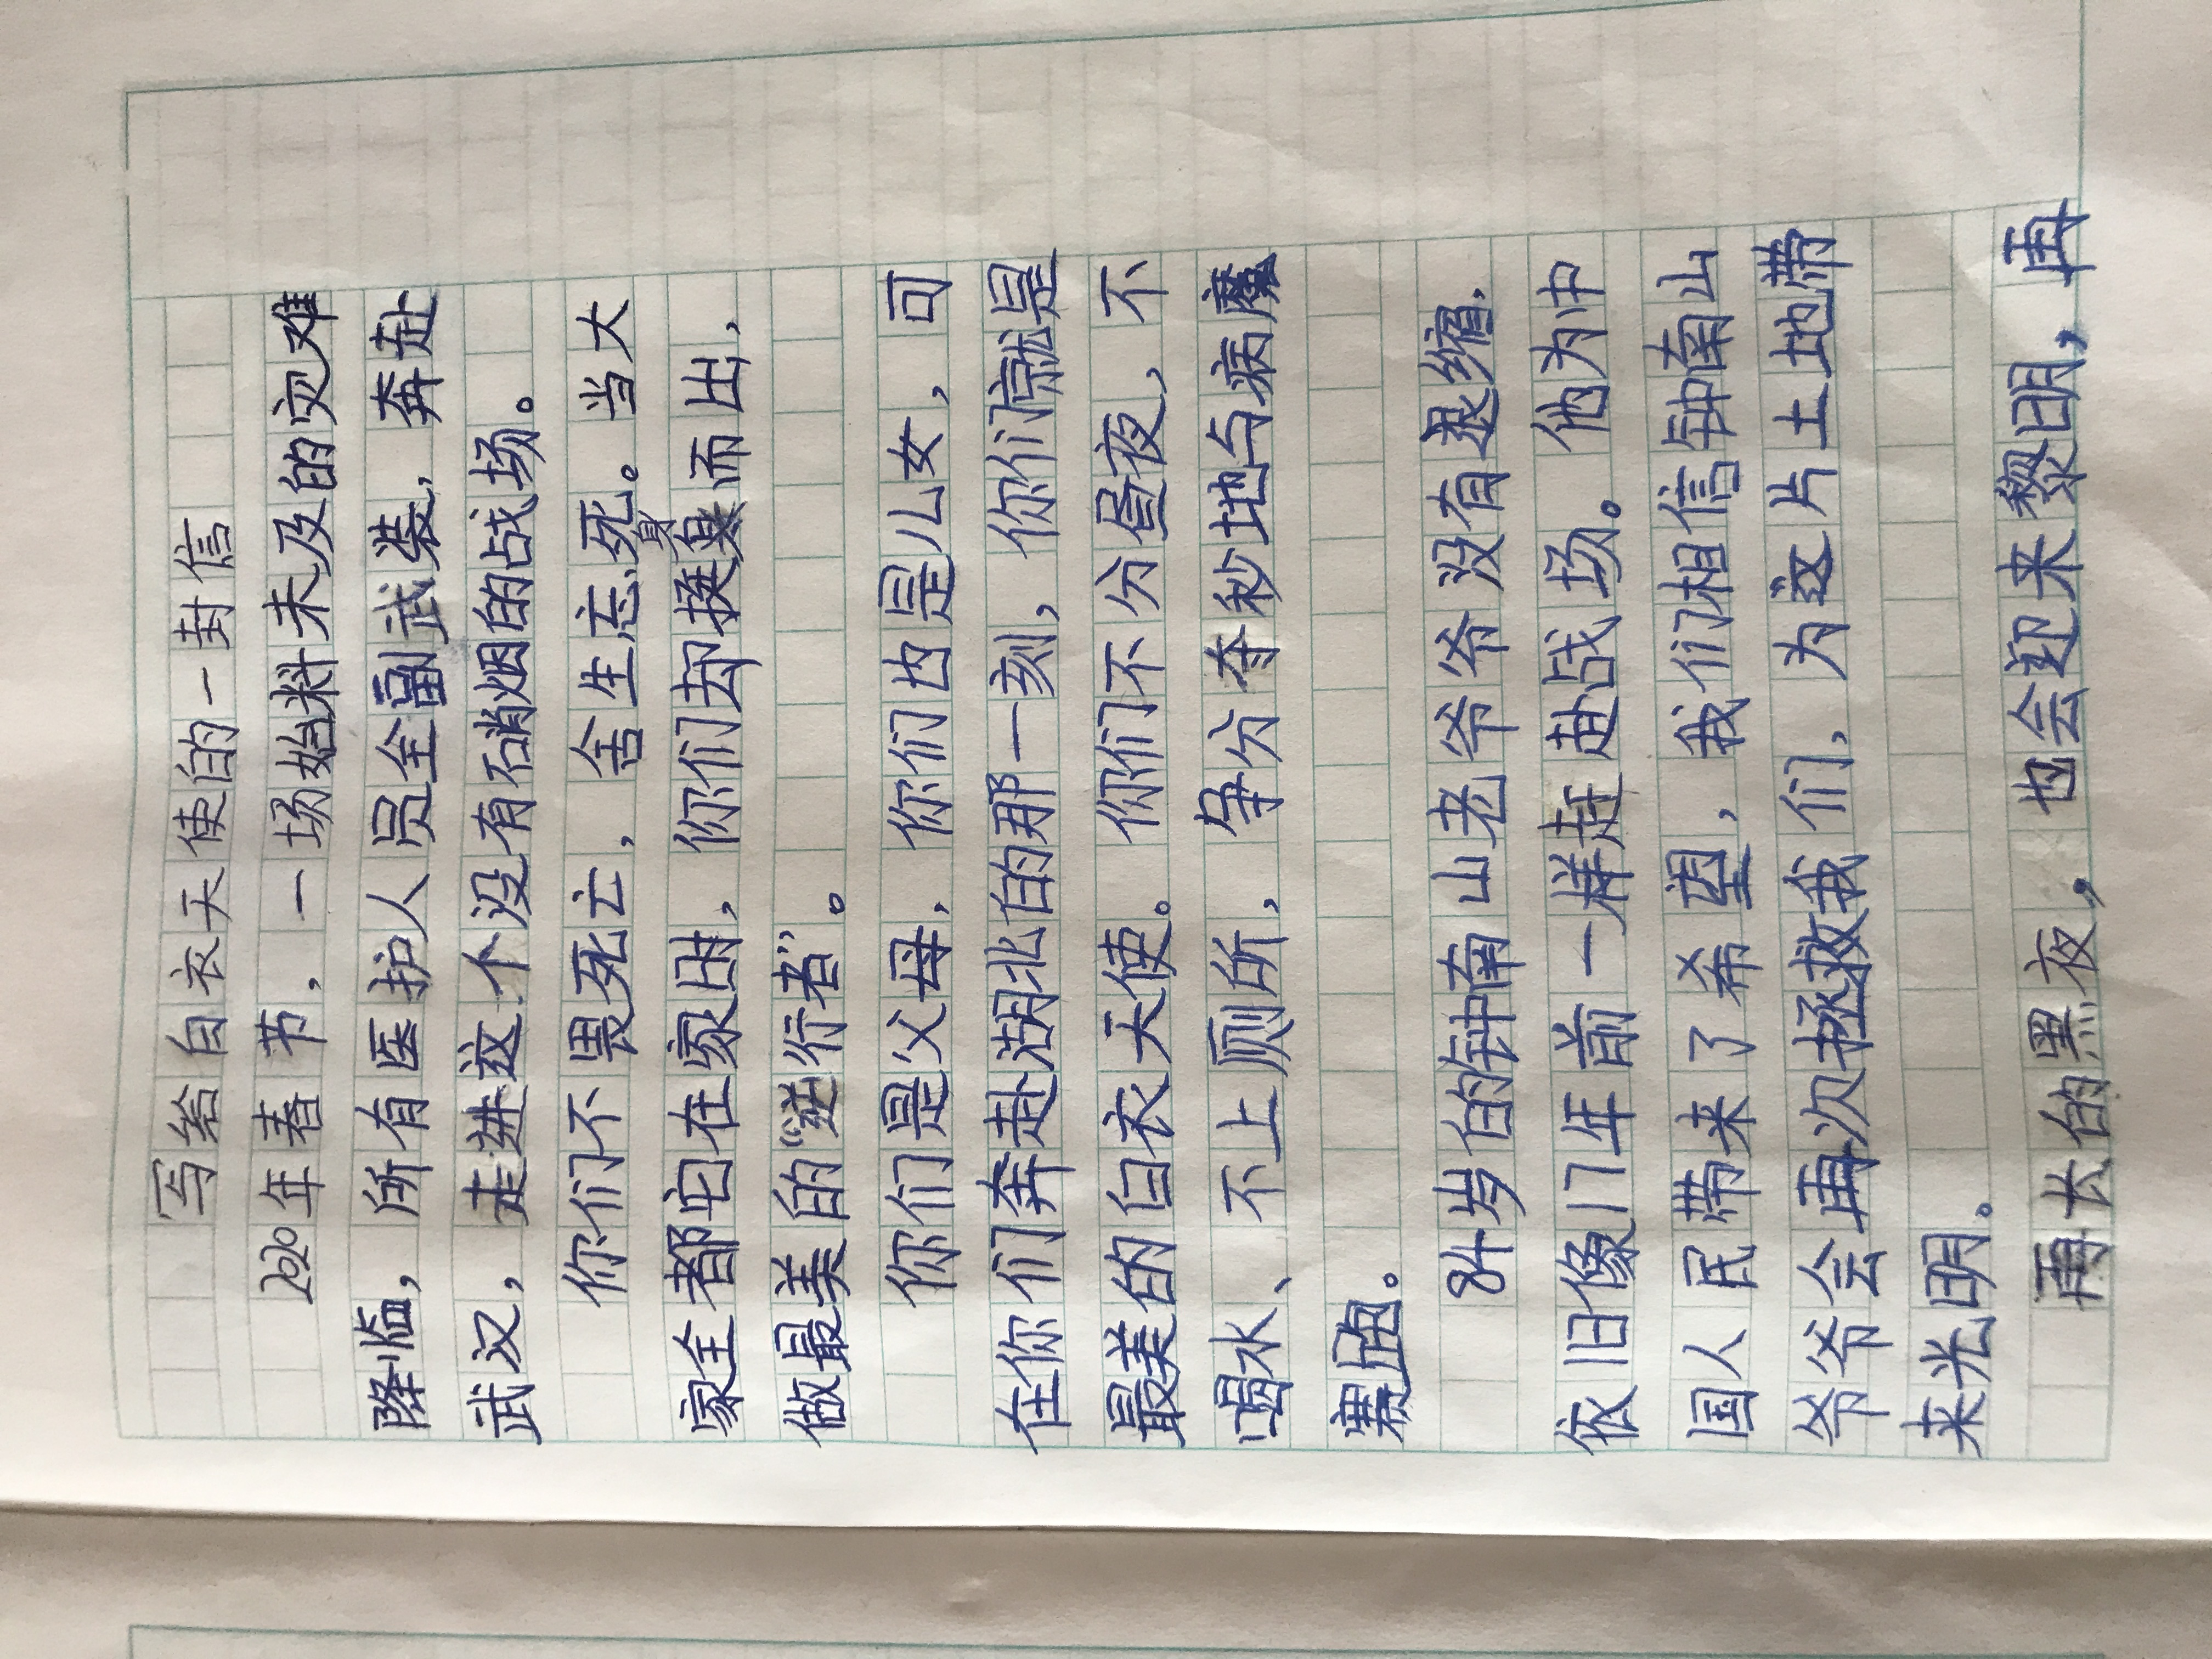 写给白衣天使的一封信
2020年春节，一场始料未及的灾难
降临，所有医护人员全副武装，奔赴
武汉，走进这个没有硝烟的战场。
你们不畏死亡，舍生忘死。当大
家全都宅在家时，你们却挺身而出，
做最美的“逆行者”。
你们是父母，你们也是儿女，可
在你们奔赴湖北的那一刻，你们就是
最美的白衣天使。你们不分昼夜，不
喝水、不上厕所，争分夺秒地与病魔
赛跑。
84岁的钟南山老爷爷没有退缩，
依旧像17年前一样赶赴战场。他为中
国人民带来了希望，我们相信钟南山
爷爷会再次拯救我们，为这片土地带
来光明。
再长的黑夜，也会迎来黎明，再